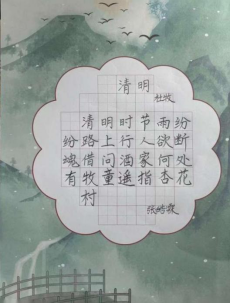 清明
杜牧
清明时节雨纷
纷路上行人欲断
魂借问酒家何处
有牧童遥指杏花
村